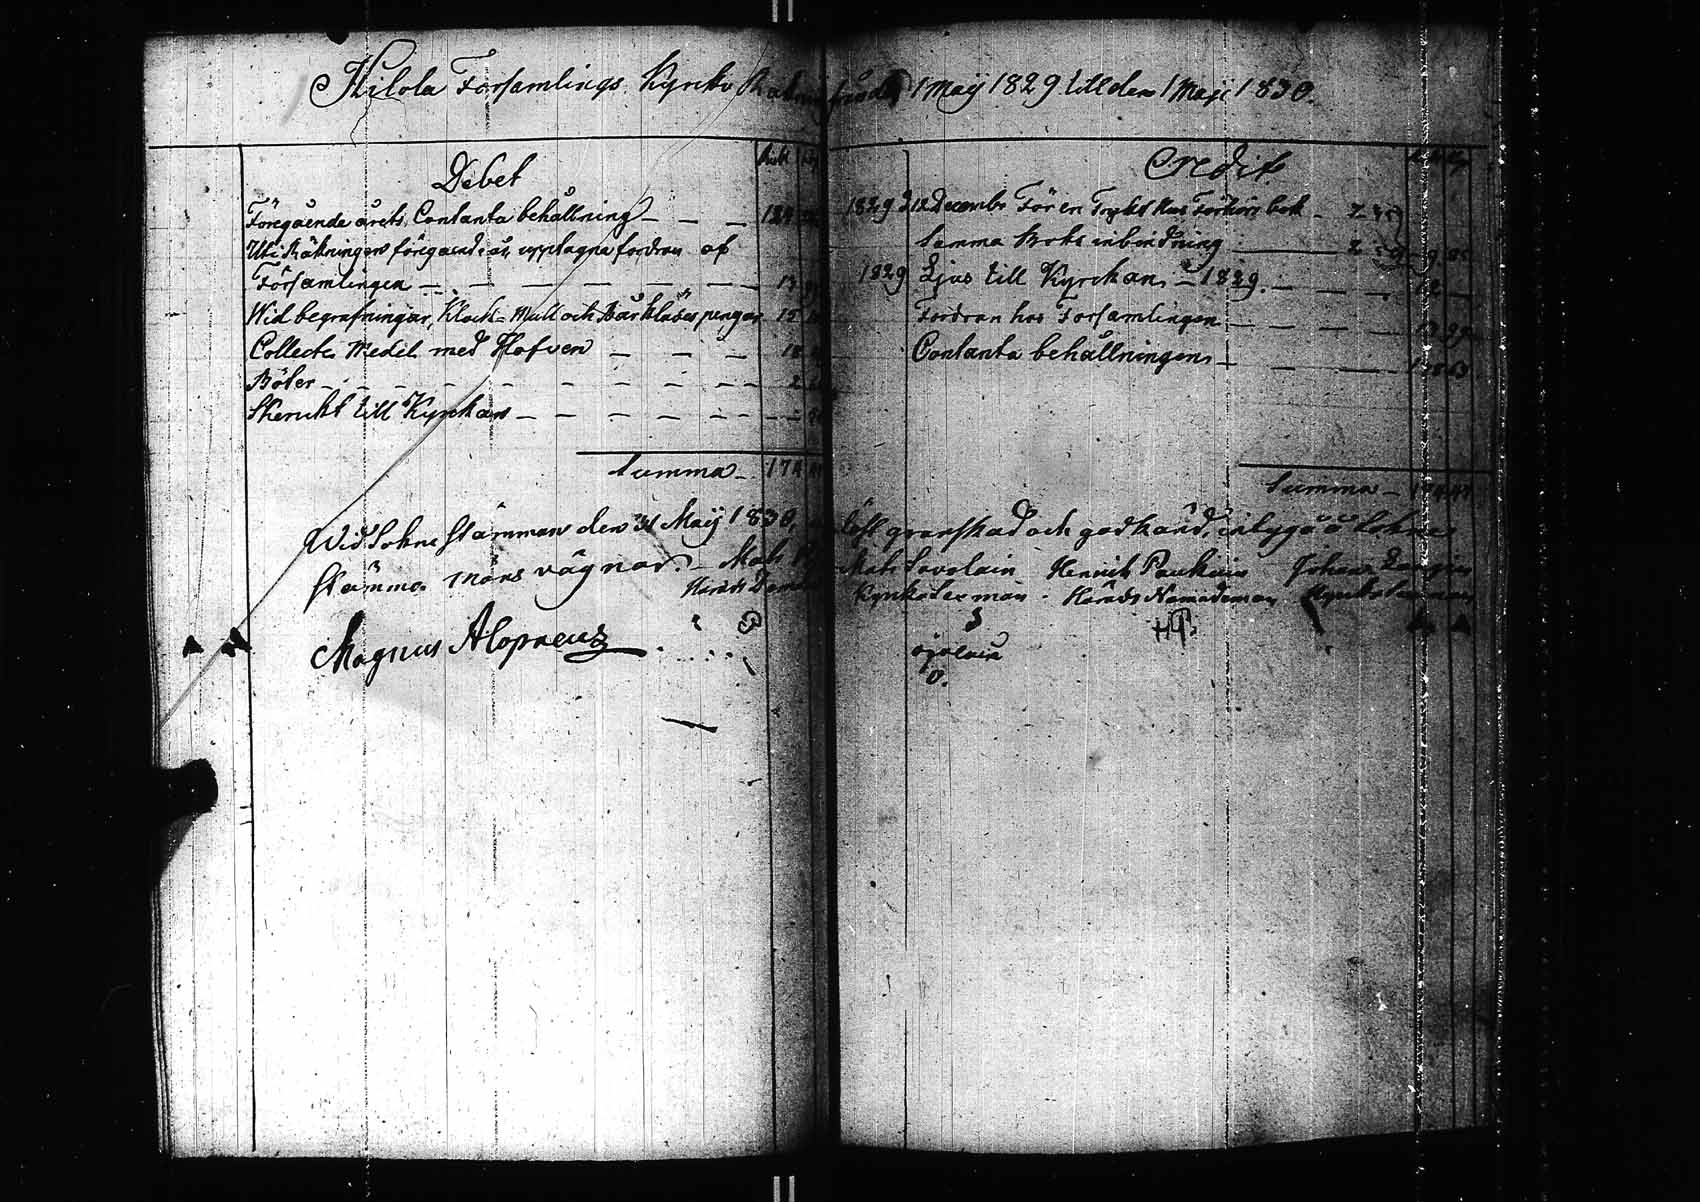 Hitola Församlings Kyrcko Räkning från d 1 Maij 1829 till den 1 Maji 1830.
Debet
Föregående årets Contanta behållning — — — 124
Uti Räkningen föregående år upptagne fordran af
Församlingen — — — — — — — 13
Wid begrafningar, Klock- Mull och Bårklädes pengar 15
Collecte Medel med Håfven — — — 18
Böter — — — — — — — — — 2
Skänckt till Kyrckan — — — — — —
Summa — 174
Credit
1829 d 12 Decembr För en Tryckt Hus Förhörs bok
Samma Boks inbindning — 9 85
1829 Ljus till Kyrckan — 1829. — — — 12 —
Fordran hos Församlingen — — — — 13 99
Contanta behållningen — — — — 138 63
Summa — 174 47
Wid Sokne Stämman den 31 Maij 1830, granskad och godkänd, intyga å Sokne
Stämmo Mäns vägnar. — Mats Mats Savolain Henrik Paukuin Johan
Härads Kyrkovärman Härads Nämndeman Kyrkovärman
Magnus Alopaeus
HP